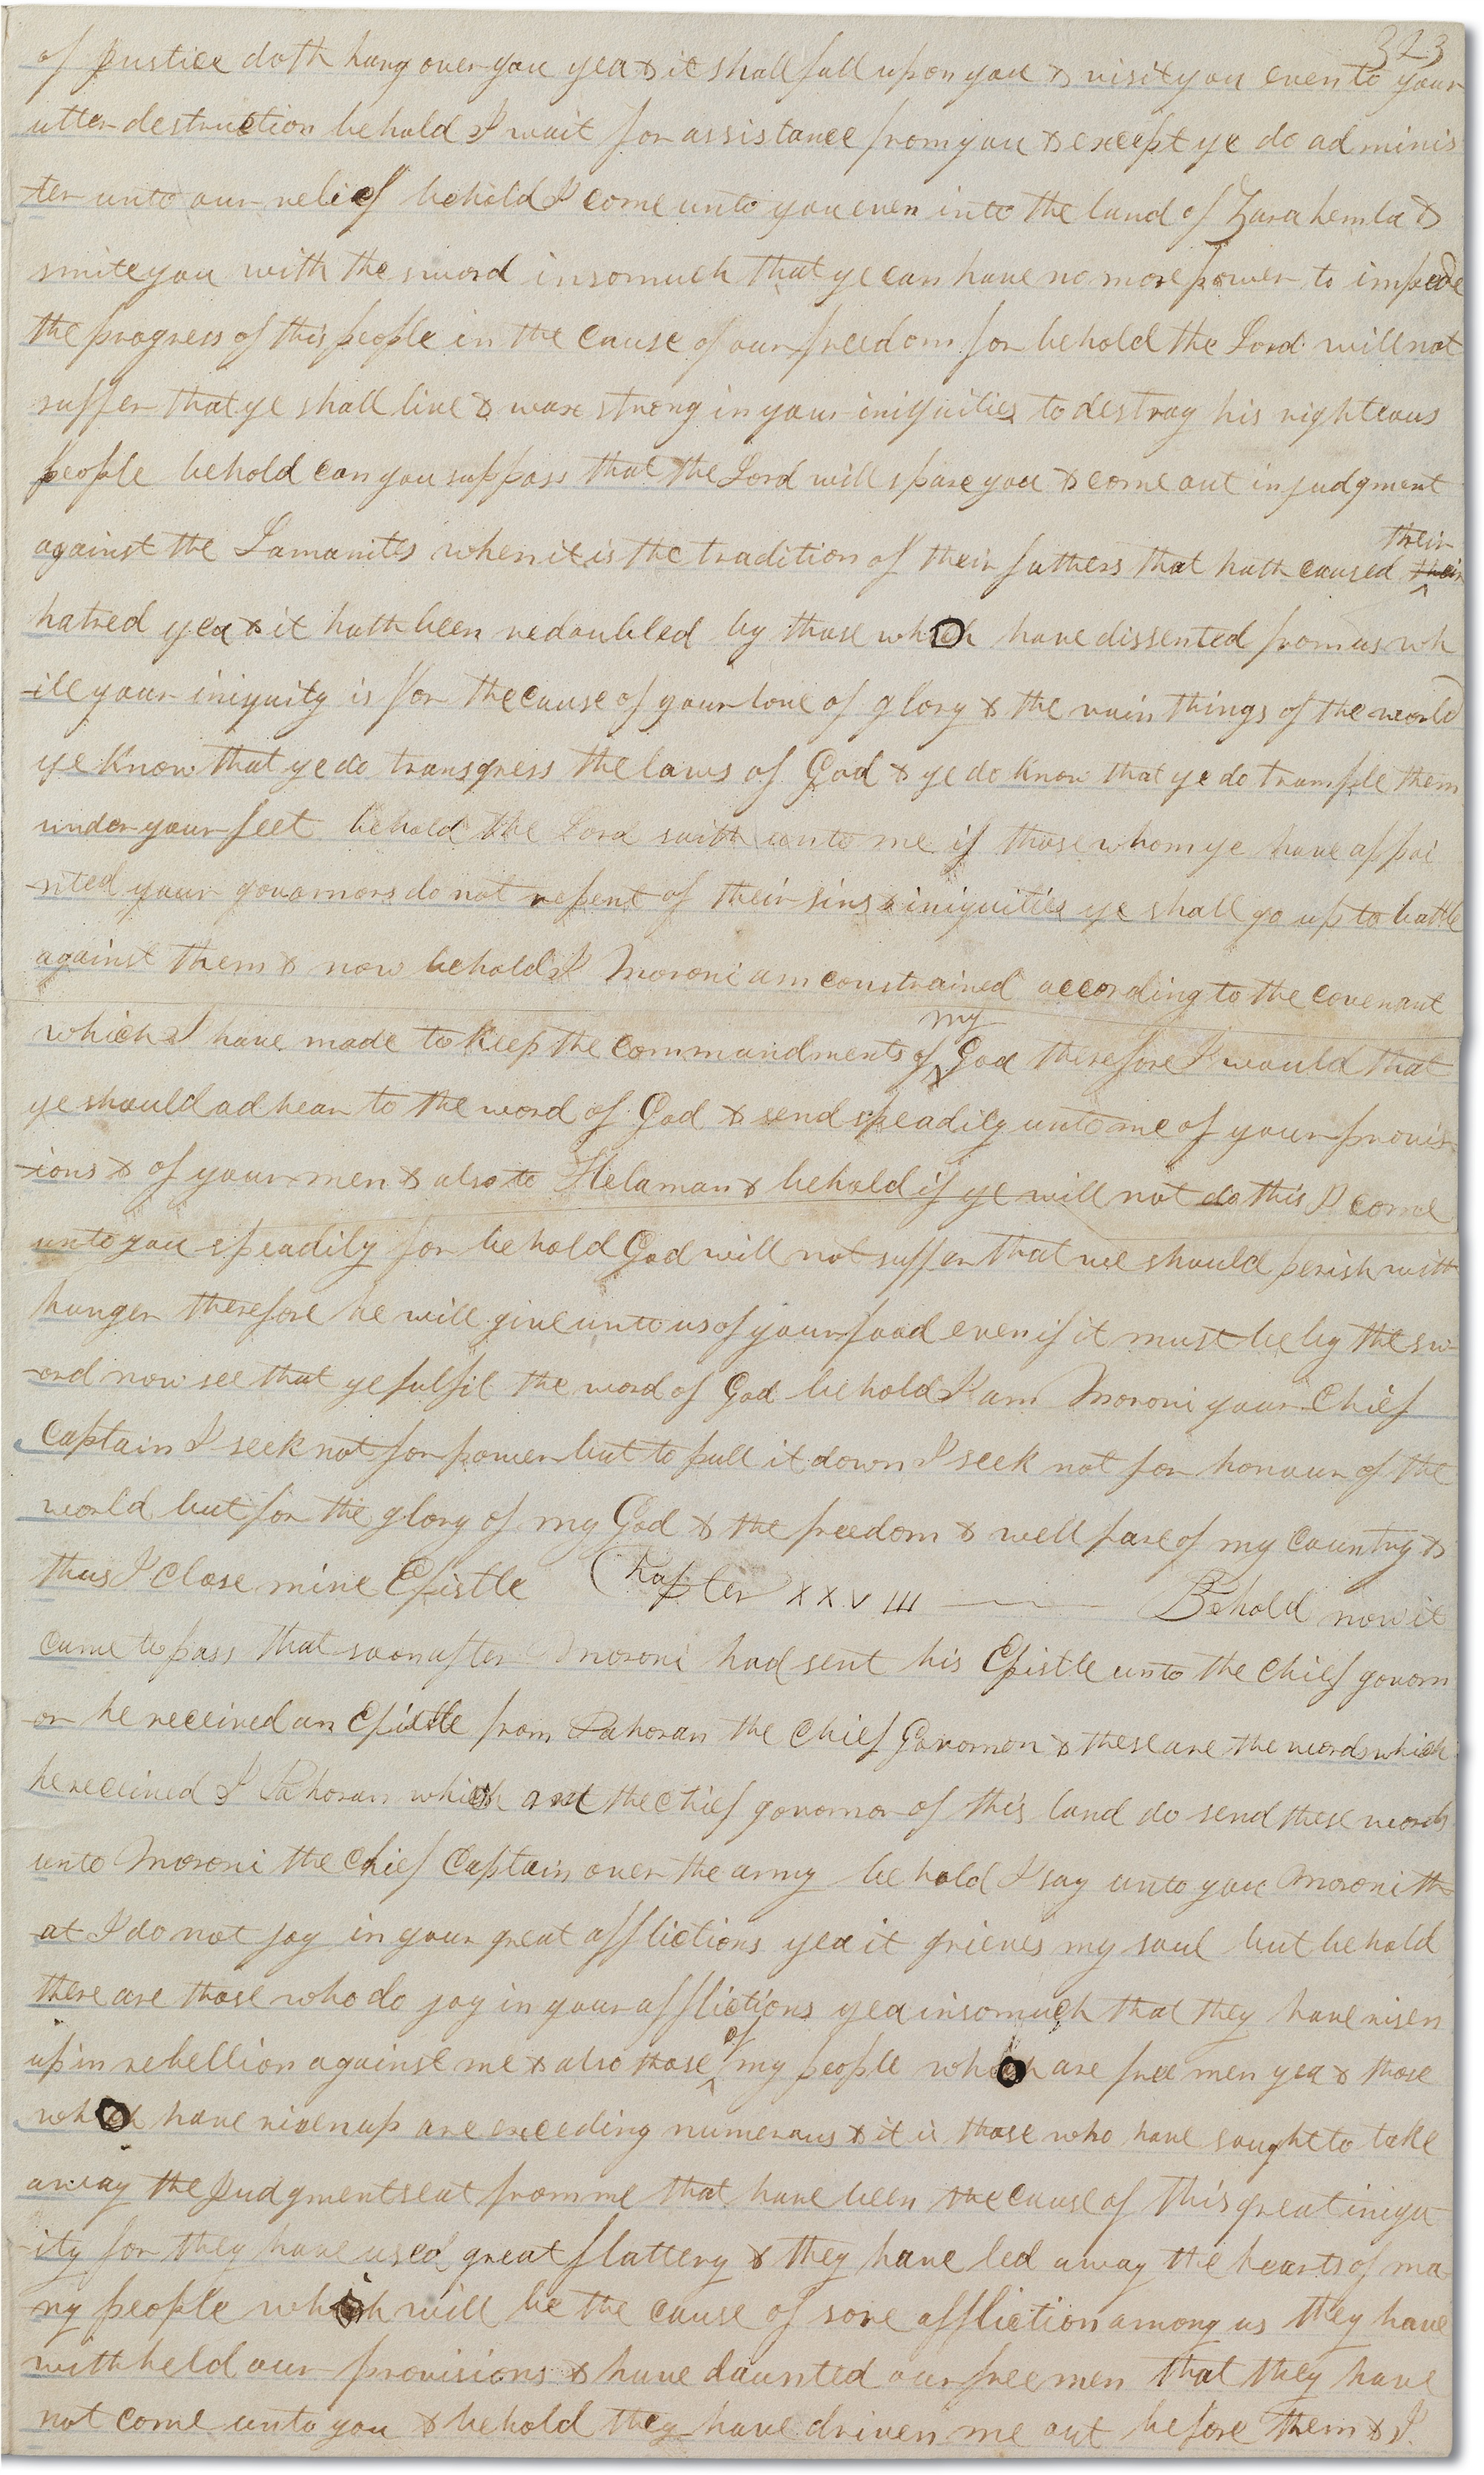 323
of justice doth hang over you yea & it shall fall upon you & visit you even to your
utter destruction behold I wait for assistance from you & except ye do adminis
-ter unto our relief behold I come unto you even into the land of Zarahemla &
smite you with the sword insomuch that ye can have no more power to impede
the progress of this people in the cause of our freedom for behold the Lord will not
suffer that ye shall live & wax strong in your iniquities to destroy his righteous
people behold can you suppose that the Lord will spare you & come out in judgment
against the Lamanites when it is the tradition of their fathers that hath caused their their
hatred yea & it hath been redoubled by those which have dissented from us wh
-ile your iniquity is for the cause of your love of glory & the vain things of the world
ye know that ye do transgress the laws of God & ye do know that ye do trample them
under your feet behold the Lord saith unto me if those whom ye have appoi
-nted your governors do not repent of their sins & iniquities ye shall go up to battle
against them & now behold I Moroni am constrained according to the covenant
which I have made to keep the commandments of my God therefore I would that
ye should adhear to the word of God & send speadily unto me of your provis
-ions & of your men & also to Helaman & behold if ye will not do this I come
unto you speadily for behold God will not suffer that we should perish with
hunger therefore he will give unto us of your food even if it must be by the sw
-ord now see that ye fulfil the word of God behold I am Moroni your Chief
Captain I seek not for power but to pull it down I seek not for honour of the
world but for the glory of my God & the freedom & wellfare of my country &
thus I close mine Epistle Chapter XXVIII Behold now it
came to pass that soon after Moroni had sent his Epistle unto the chief govorn
-or he received an Epistle from Pahoran the chief Govornor & these are the words which
he received I Pahoran which am the chief govornor of this land do send these words
unto Moroni the chief Captain over the army behold I say unto you Moroni th
-at I do not joy in your great afflictions yea it grieves my soul but behold
there are those who do joy in your afflictions yea insomuch that they have risen
up in rebellion against me & also those of my people which are free men yea & those
which have risen up are exceeding numerous & it is those who have sought to take
away the Judgment seat from me that have been the cause of this great iniqu
-ity for they have used great flattery & they have led away the hearts of ma
-ny people which will be the cause of sore affliction among us they have
withheld our provisions & have daunted our free men that they have
not come unto you & behold they have driven me out before them & I